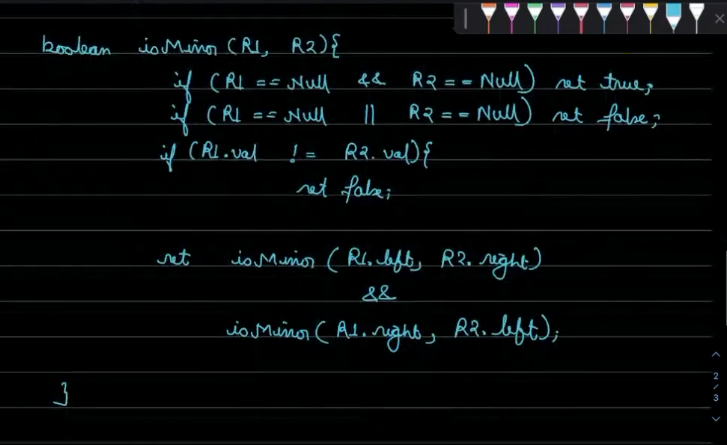 boolean isMirror (R1, R2){
if (R1 == Null && R2 == Null) ret true;
if (R1 == Null || R2 == Null) ret false;
if (R1.val != R2.val){
ret false;
ret isMirror (R1.left, R2.right)
&&
isMirror (R1.right, R2.left);
}
2
/
3